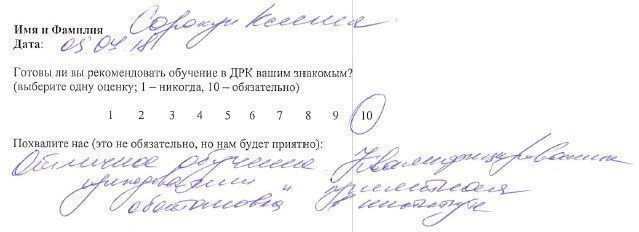 Имя и Фамилия Сорокун Ксения
Дата: 05.04.18
Готовы ли вы рекомендовать обучение в ДРК вашим знакомым?
(выберите одну оценку; 1 – никогда, 10 – обязательно)
1 2 3 4 5 6 7 8 9 10
Похвалите нас (это не обязательно, но нам будет приятно):
Отличное обучение. Квалифицированные
приятная
обстановка в институте